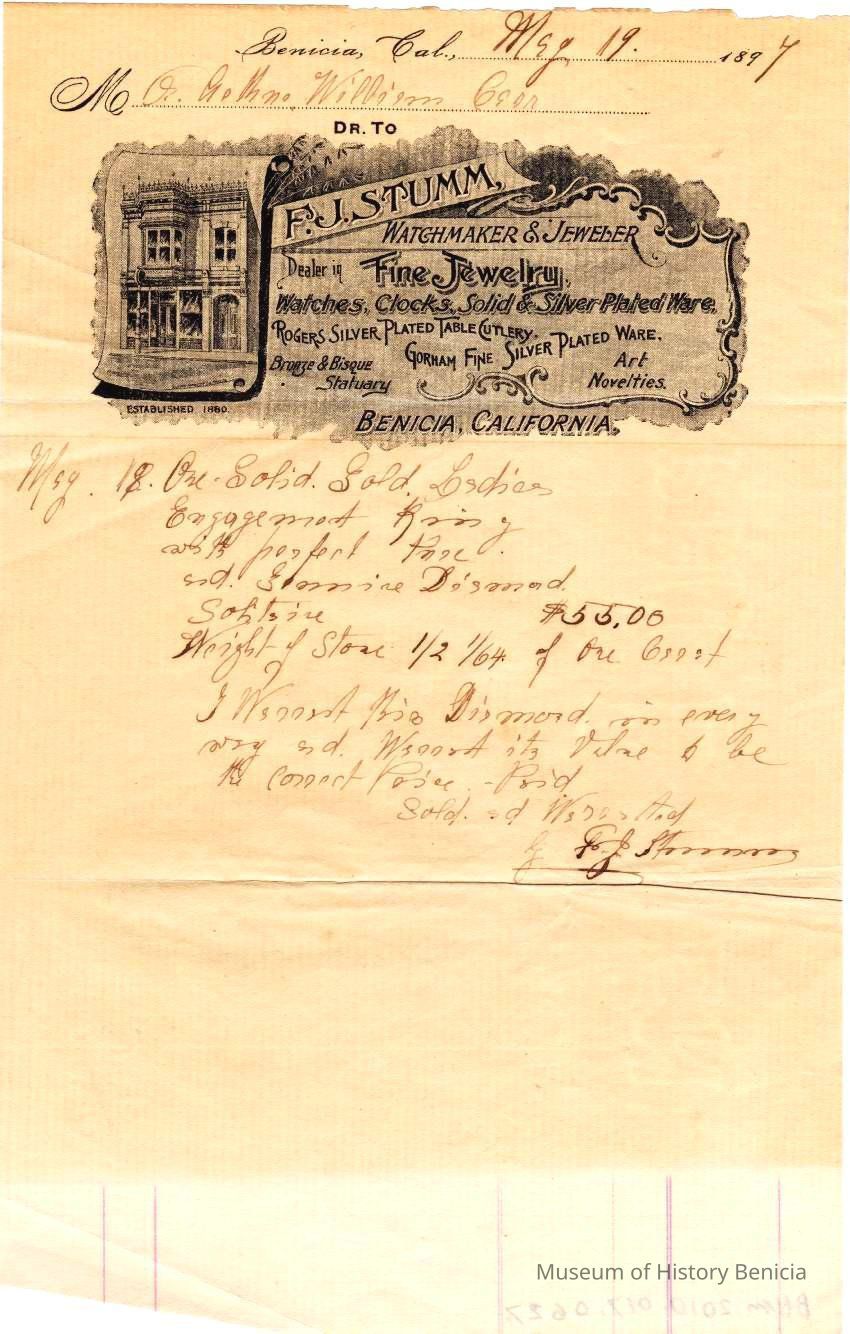 Benicia, Cal., May 19. 1897
M William
DR. TO
F. J. STUMM,
WATCHMAKER & JEWELER
Dealer in Fine Jewelry,
Watches, Clocks, Solid & Silver Plated Ware,
ROGERS SILVER PLATED TABLE CUTLERY.
GORHAM FINE SILVER PLATED WARE.
Bronze & Bisque Statuary
Art Novelties.
ESTABLISHED 1880.
BENICIA, CALIFORNIA,
May. 18. One Solid. Gold. Ladies
Engagement Ring
with perfect
and. Genuine Diamond.
Solitaire $55.00
Weight of Stone 1/2 1/64 of One Carat
I Warrant this Diamond. in every
way and. Warrant its Value to be
the correct Price - Paid
Sold. and Warranted
F. J. Stumm
Museum of History Benicia
BHM 2010.017.0627